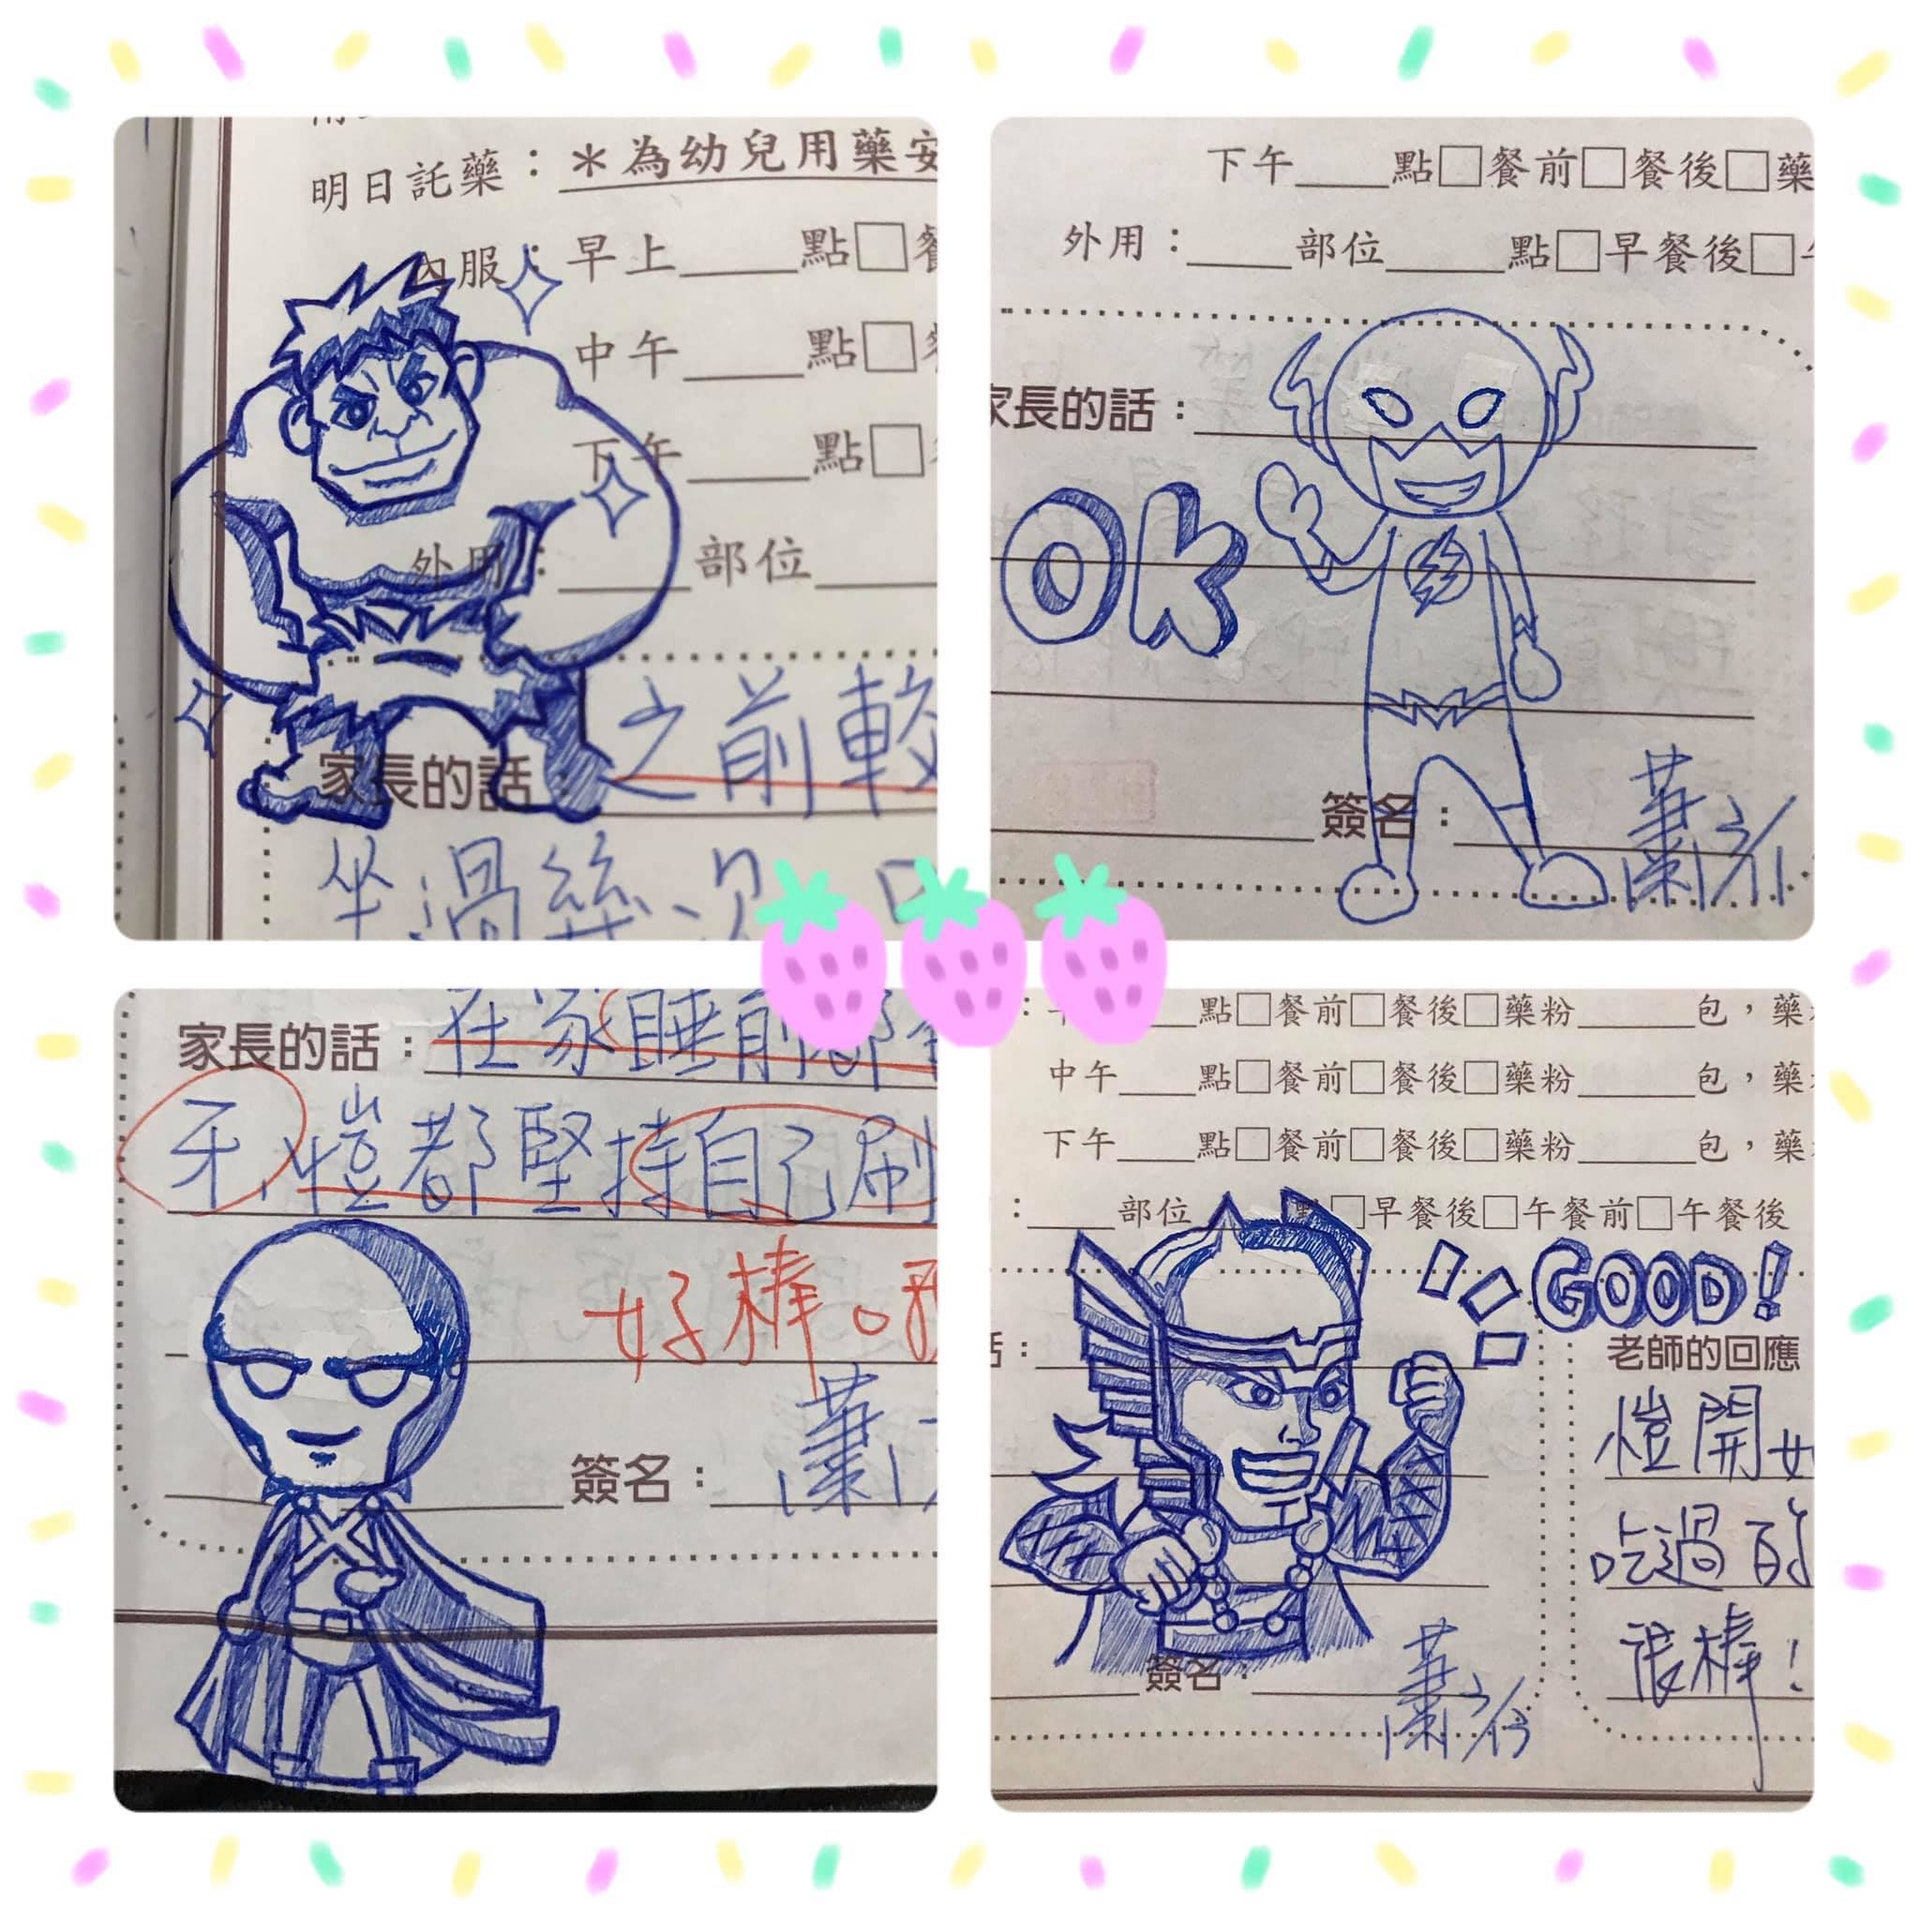 明日託藥：＊為幼兒用藥安
內服：早上____點□餐
中午____點□餐
下午____點□
外用：____部位____
之前較
家長的話：
坐過幾次
下午____點□餐前□餐後□藥
外用：____部位____點□早餐後□午
家長的話：
OK
簽名：
蕭
家長的話：在家睡前都
牙，愷都堅持自己刷
好棒。
簽名：
蕭
____點□餐前□餐後□藥粉____包，藥
中午____點□餐前□餐後□藥粉____包，藥
下午____點□餐前□餐後□藥粉____包，藥
：____部位____點□早餐後□午餐前□午餐後
GOOD!
話：
老師的回應
愷開
吃過的
很棒！
簽名：
蕭